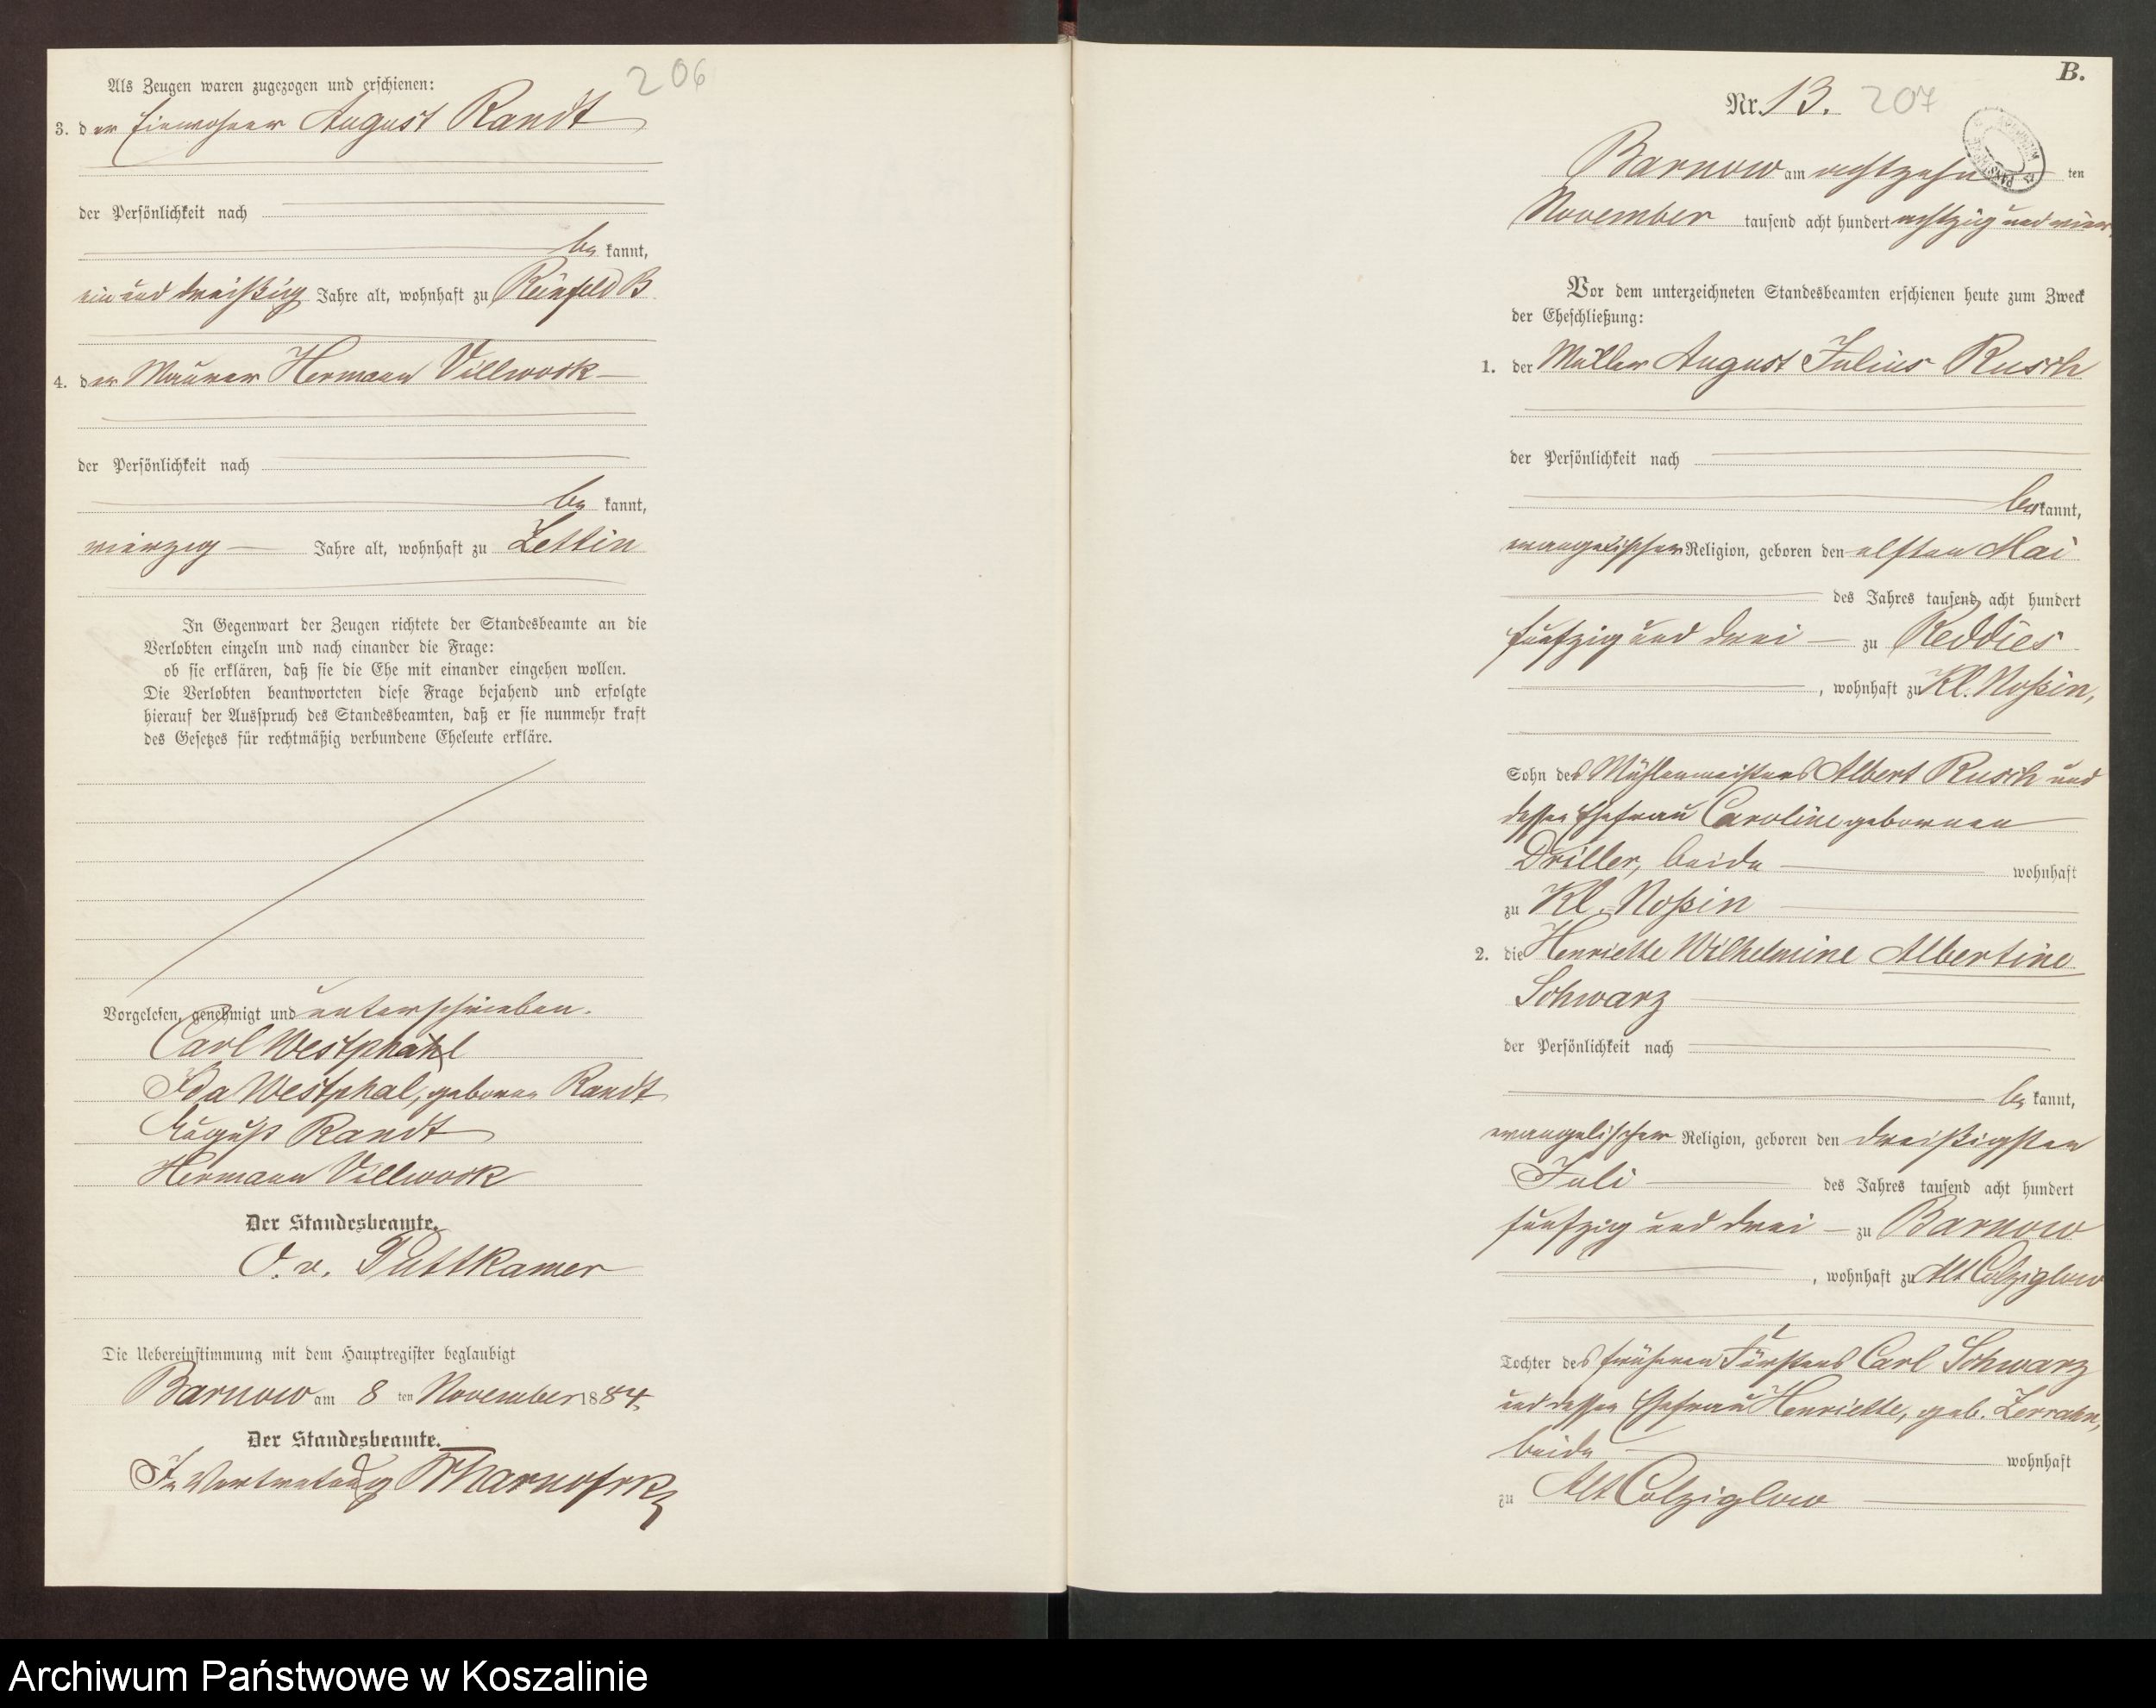 206
Als Zeugen waren zugezogen und erschienen:
3. der Einwohner August Randt
der Persönlichkeit nach
be kannt,
ein und dreißig Jahre alt, wohnhaft zu Reinfeld B
4. der Maurer Hermann Villwock
der Persönlichkeit nach
be kannt,
vierzig Jahre alt, wohnhaft zu Zettin
In Gegenwart der Zeugen richtete der Standesbeamte an die
Verlobten einzeln und nach einander die Frage:
ob sie erklären, daß sie die Ehe mit einander eingehen wollen.
Die Verlobten beantworteten diese Frage bejahend und erfolgte
hierauf der Ausspruch des Standesbeamten, daß er sie nunmehr kraft
des Gesetzes für rechtmäßig verbundene Eheleute erkläre.
Vorgelesen, genehmigt und unterschrieben.
Carl Westphal
Ida Westphal, geborene Randt
August Randt
Hermann Villwock
Der Standesbeamte.
O. v. Puttkamer
Die Uebereinstimmung mit dem Hauptregister beglaubigt
Barnow am 8 ten November 1884.
Der Standesbeamte.
In Vertretung
B.
Nr. 13. 207
Barnow am achtzehn ten
November tausend acht hundert achtzig und vier
Vor dem unterzeichneten Standesbeamten erschienen heute zum Zweck
der Eheschließung:
1. der Müller August Julius Rusch
der Persönlichkeit nach
be kannt,
evangelischer Religion, geboren den elften Mai
des Jahres tausend acht hundert
fünfzig und drei zu Reddies
, wohnhaft zu Kl. Noßin,
Sohn des Mühlenmeisters Albert Rusch und
dessen Ehefrau Caroline gebornen
Driller, beide wohnhaft
zu Kl. Noßin
2. die Henriette Wilhelmine Albertine
Schwarz
der Persönlichkeit nach
be kannt,
evangelischer Religion, geboren den dreißigsten
Juli des Jahres tausend acht hundert
fünfzig und drei zu Barnow
, wohnhaft zu Alt Colziglow
Tochter des früheren Försters Carl Schwarz
und dessen Ehefrau Henriette, geb. Zerrahn,
beide wohnhaft
zu Alt Colziglow
Archiwum Państwowe w Koszalinie